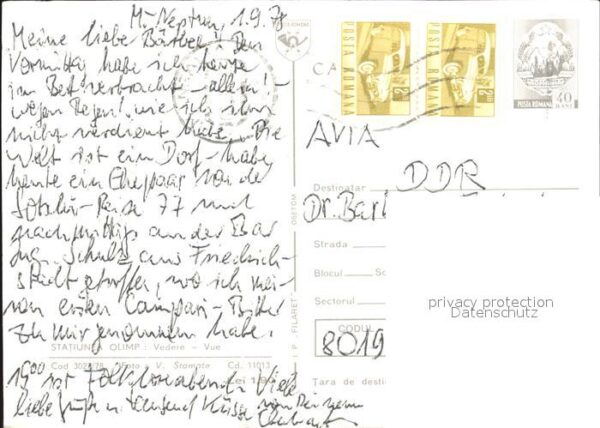 M.-Neptun, 1.9.78
Meine liebe Bärbel! Den
Vormittag habe ich heute
im Bett verbracht - allein! -
wegen Regen! wie ich ihn
nicht verdient habe. Die
Welt ist ein Dorf - habe
heute ein Ehepaar von der
Reise 77 und
nachmittags an der Bar
Ing. Schulz aus Friedrich-
stadt getroffen, wo ich mei-
nen ersten Campari-Bitter
zu mir genommen habe.
STAȚIUNEA OLIMP: Vedere - Vue
Cod 3023/78 Foto: V. Stamate Cd. 11013
Lei 1,
19⁰⁰ ist Folkloreabend. Viele
liebe Grüße u. tausend Küsse von Deinem
POSTA ROMANA
POSTA ROMANA
POSTA ROMANA
40
BANI
CA
AVIA
Destinatar
DDR
Dr. Barb
Strada
Blocul Sc
Sectorul
privacy protection
Datenschutz
CODUL
8019
Țara de desti